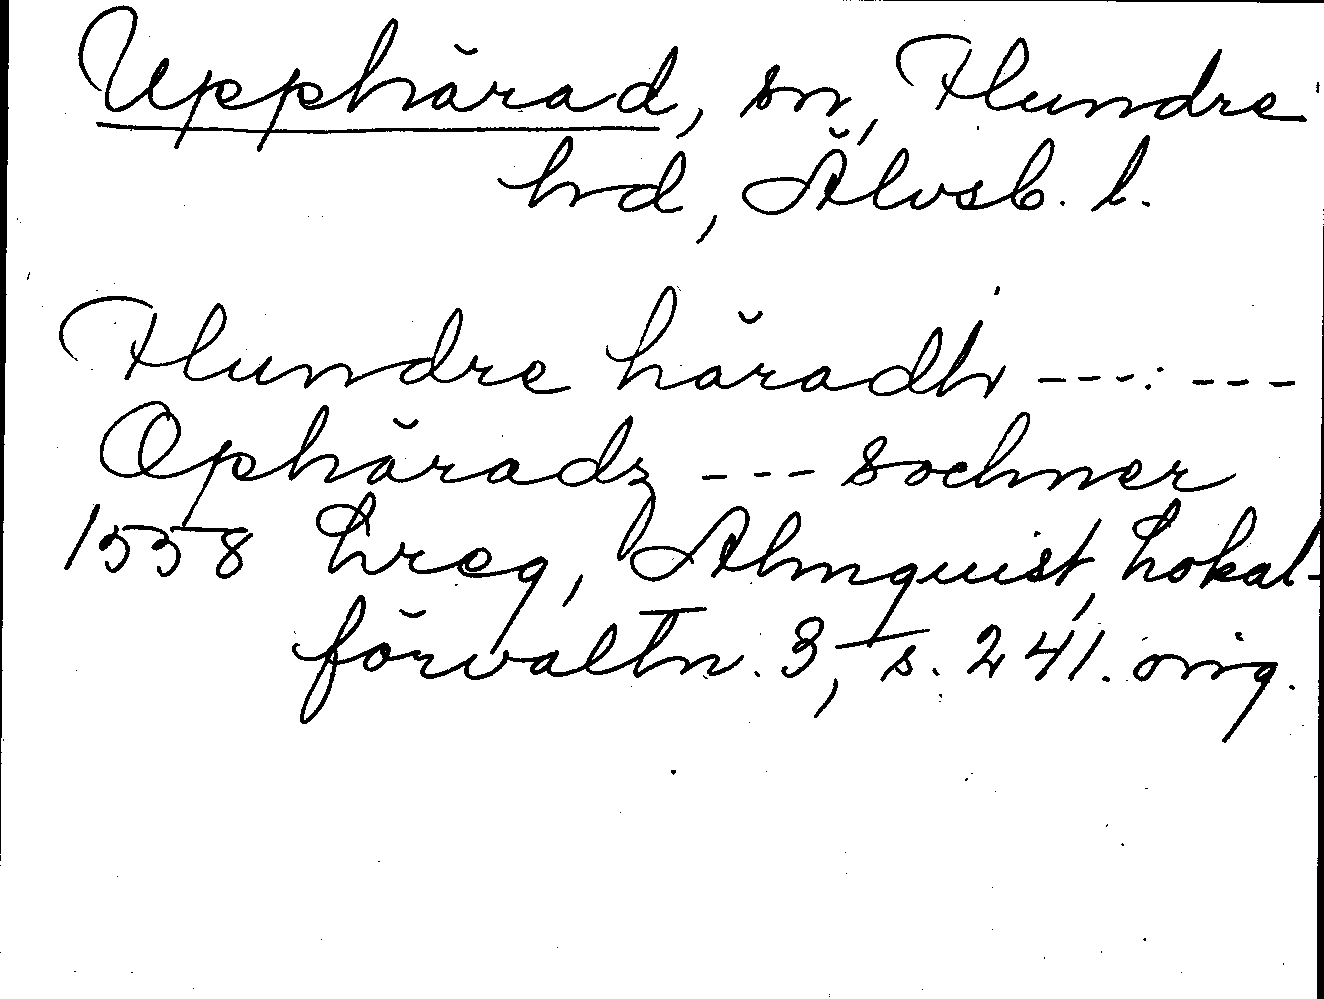 Upphärad, sn, Flundre
hrd, Älvsb. l.
Flundre häradh ---: ---
Ophäradz --- sochner
1558 Lreg, Almquist, Lokal-
förvaltn. 3, s. 241. orig.